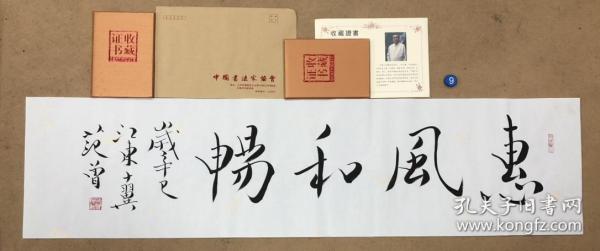 收藏
证书
中國書法家協會
收藏
证书
收藏證書
9
惠風和暢
歲辛巳
江東十翼
范曾
孔夫子旧书网